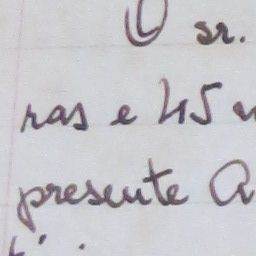 O sr.
ras e 45
presente A